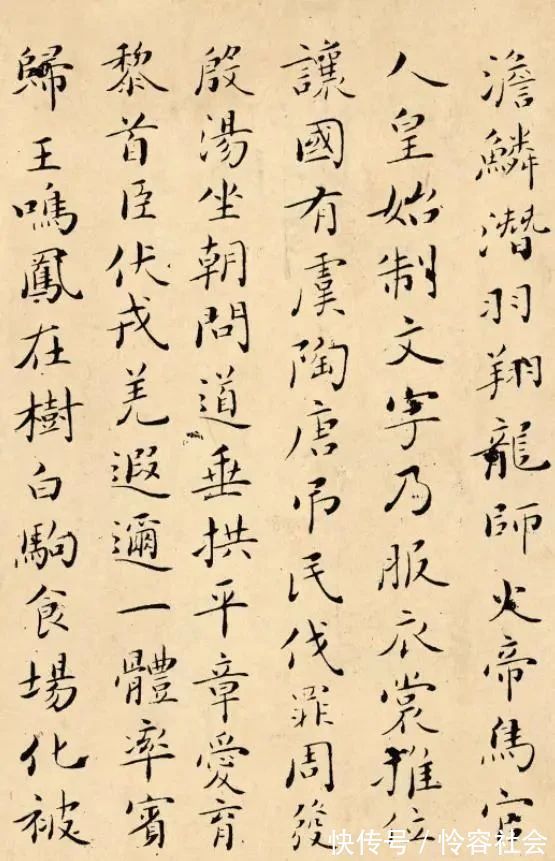 澹鱗潛羽翔龍師火帝鳥官
人皇始制文字乃服衣裳推位
讓國有虞陶唐弔民伐罪周發
殷湯坐朝問道垂拱平章愛育
黎首臣伏戎羌遐邇一體率賓
歸王鳴鳳在樹白駒食場化被
快传号/怜容社会